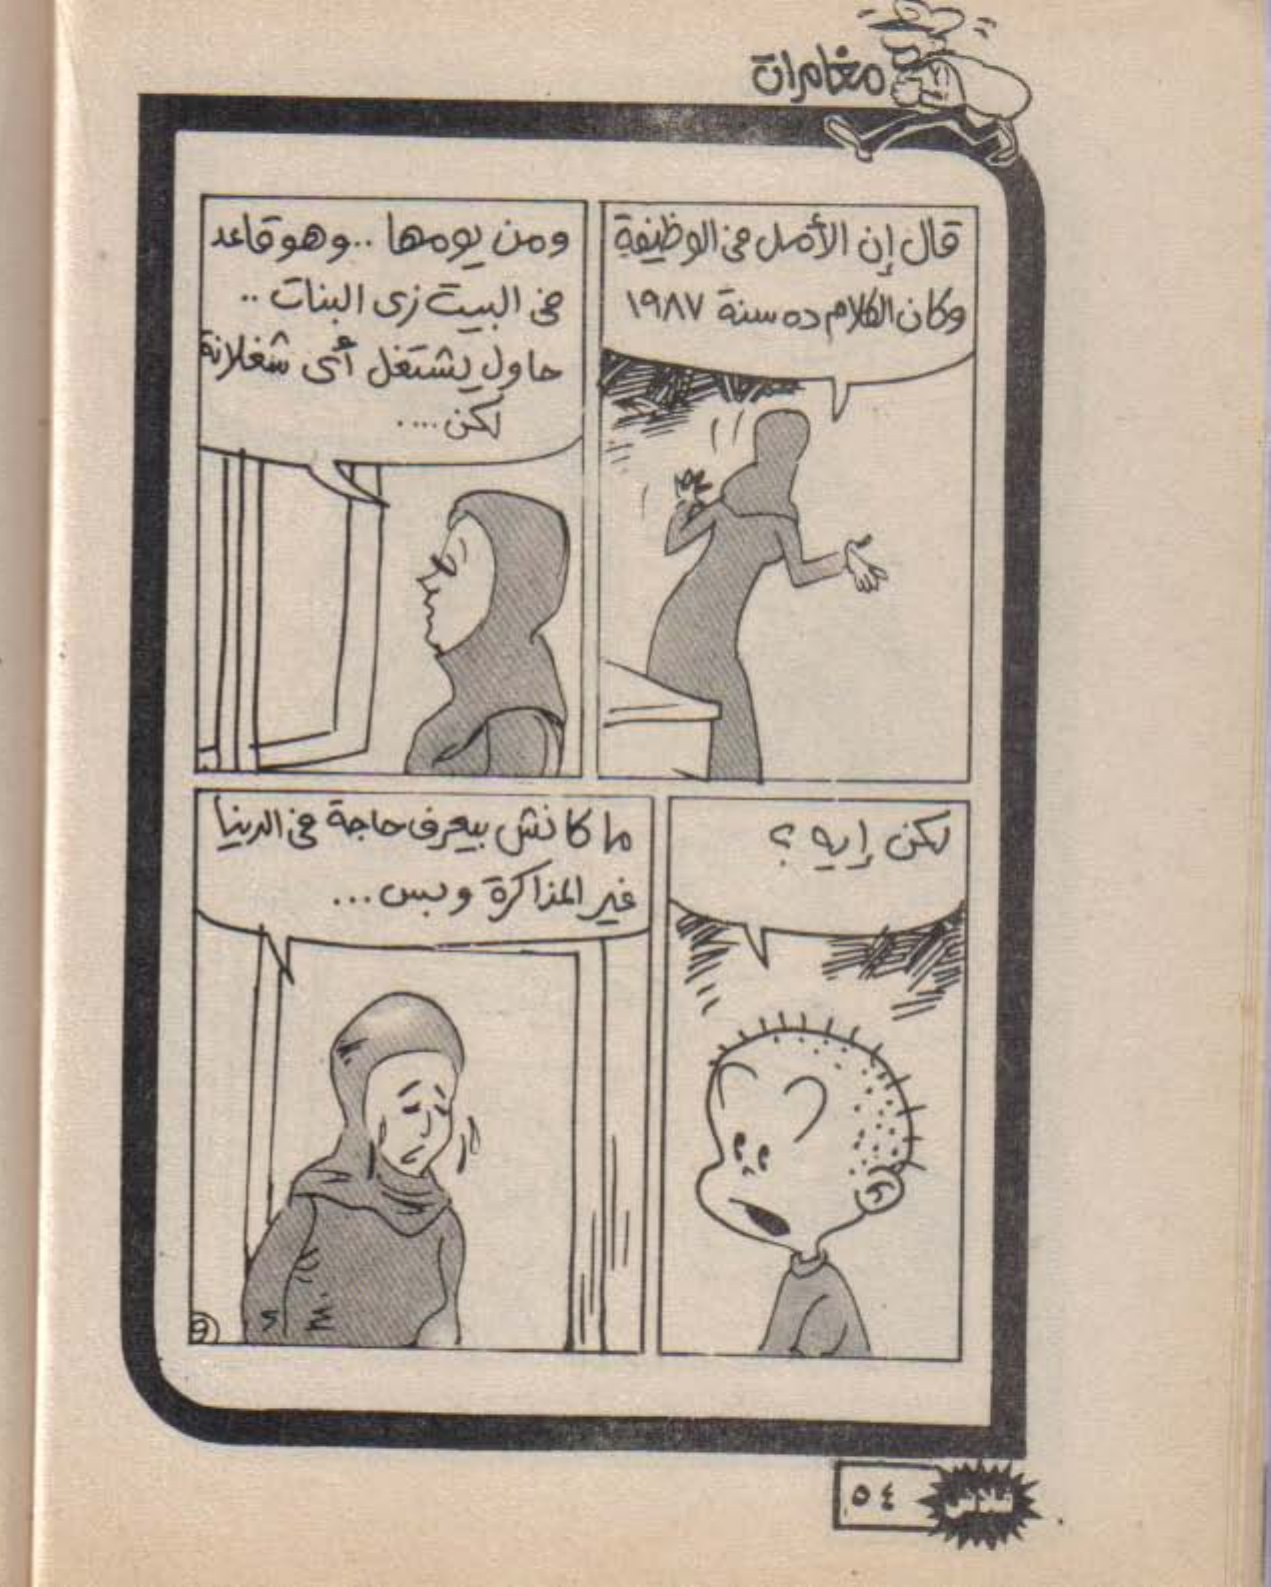 مغامرات
قال إن الأمل فى الوظيفة
وكان الكلام ده سنة ١٩٨٧
ومن يومها .. وهو قاعد
فى البيت زى البنات ..
حاول يشتغل أى شغلانة
لكن ....
لكن إيه ؟
ما كانش بيعرف حاجة فى الدنيا
غير المذاكرة وبس ...
فلاش
٥٤